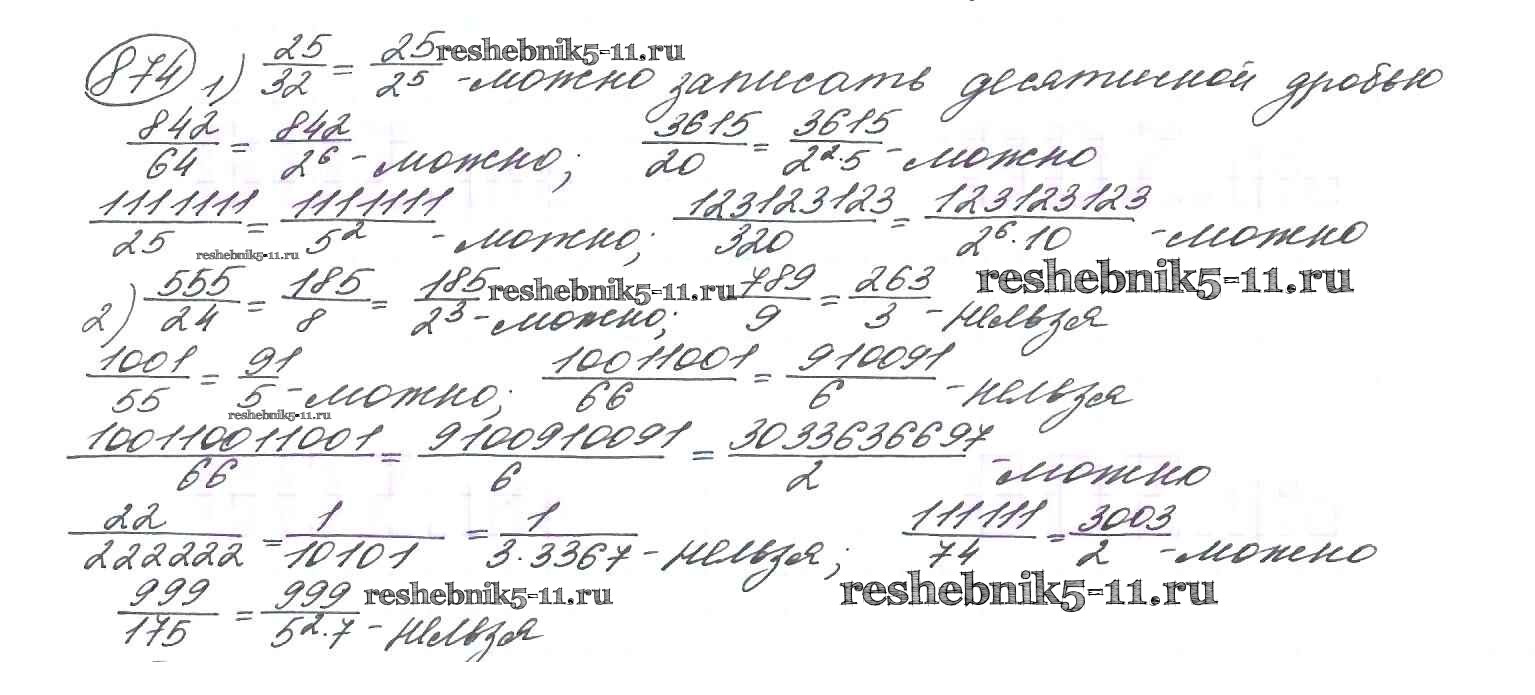 874 1) 25/32 = 25/2^5 reshebnik5-11.ru - можно записать десятичной дробью
842/64 = 842/2^6 - можно; 3615/20 = 3615/2^2·5 - можно
1111111/25 = 1111111/5^2 - можно; 123123123/320 = 123123123/2^6·10 - можно
reshebnik5-11.ru
2) 555/24 = 185/8 = 185/2^3 reshebnik5-11.ru - можно; 789/9 = 263/3 - нельзя reshebnik5-11.ru
1001/55 = 91/5 - можно; 10011001/66 = 910091/6 - нельзя
reshebnik5-11.ru
100110011001/66 = 9100910091/6 = 3033636697/2 - можно
22/222222 = 1/10101 = 1/3·3367 - нельзя; 111111/74 = 3003/2 - можно
999/175 = 999/5^2·7 reshebnik5-11.ru - нельзя reshebnik5-11.ru